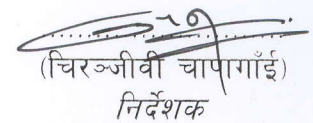 (चिरञ्जीवी चापागाँई)
निर्देशक